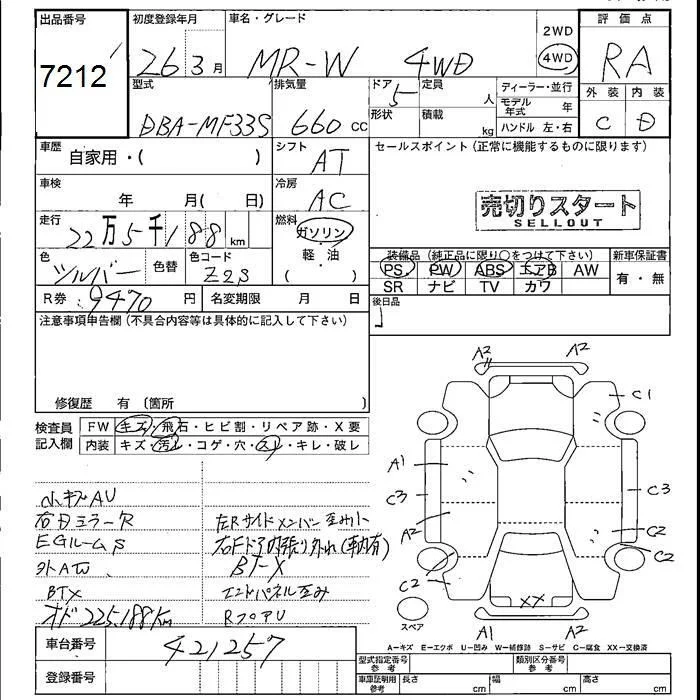 出品番号
7212
初度登録年月
26 3 月
車名・グレード
MR-W 4WD
2WD
4WD
評価点
RA
外装 内装
C D
型式
DBA-MF33S
排気量
660 cc
ドア 5
定員 人
形状
積載 kg
ディーラー・並行
モデル年式 年
ハンドル 左・右
車歴
自家用・( )
シフト
AT
セールスポイント (正常に機能するものに限ります)
車検
年 月( 日)
冷房
AC
売切りスタート
SELLOUT
走行
22万5千188 km
燃料
ガソリン
軽・油
( )
装備品 (純正品に限り○をつけて下さい)
PS PW ABS エアB AW
SR ナビ TV カワ
新車保証書
有・無
色
シルバー
色替
色コード
Z2S
R券 9470 円
名変期限 月 日
後日品
注意事項申告欄 (不具合内容等は具体的に記入して下さい)
修復歴 有 (箇所 )
検査員記入欄
FW キズ・飛石・ヒビ割・リペア跡・X要
内装 キズ・汚レ・コゲ・穴・スレ・キレ・破レ
小キズAU
右日ミラーR
左Rサイドメンバー歪み小
EGルームS
右Fドア内張り外れ(車内有)
外AW
BT-X
BTX
エンドパネル歪み
オド 225,188Km
RフロアU
A2 A2
C1
A1
C3 C3
A2
C2
C2
C2
XX
スペア
A1 A2
A-キズ E-エクボ U-凹み W-補修跡 S-サビ C-腐食 XX-交換済
車台番号
421257
登録番号
型式指定番号 参考
類別区分番号 参考
車庫証明用 参考
長さ cm
幅 cm
高さ cm